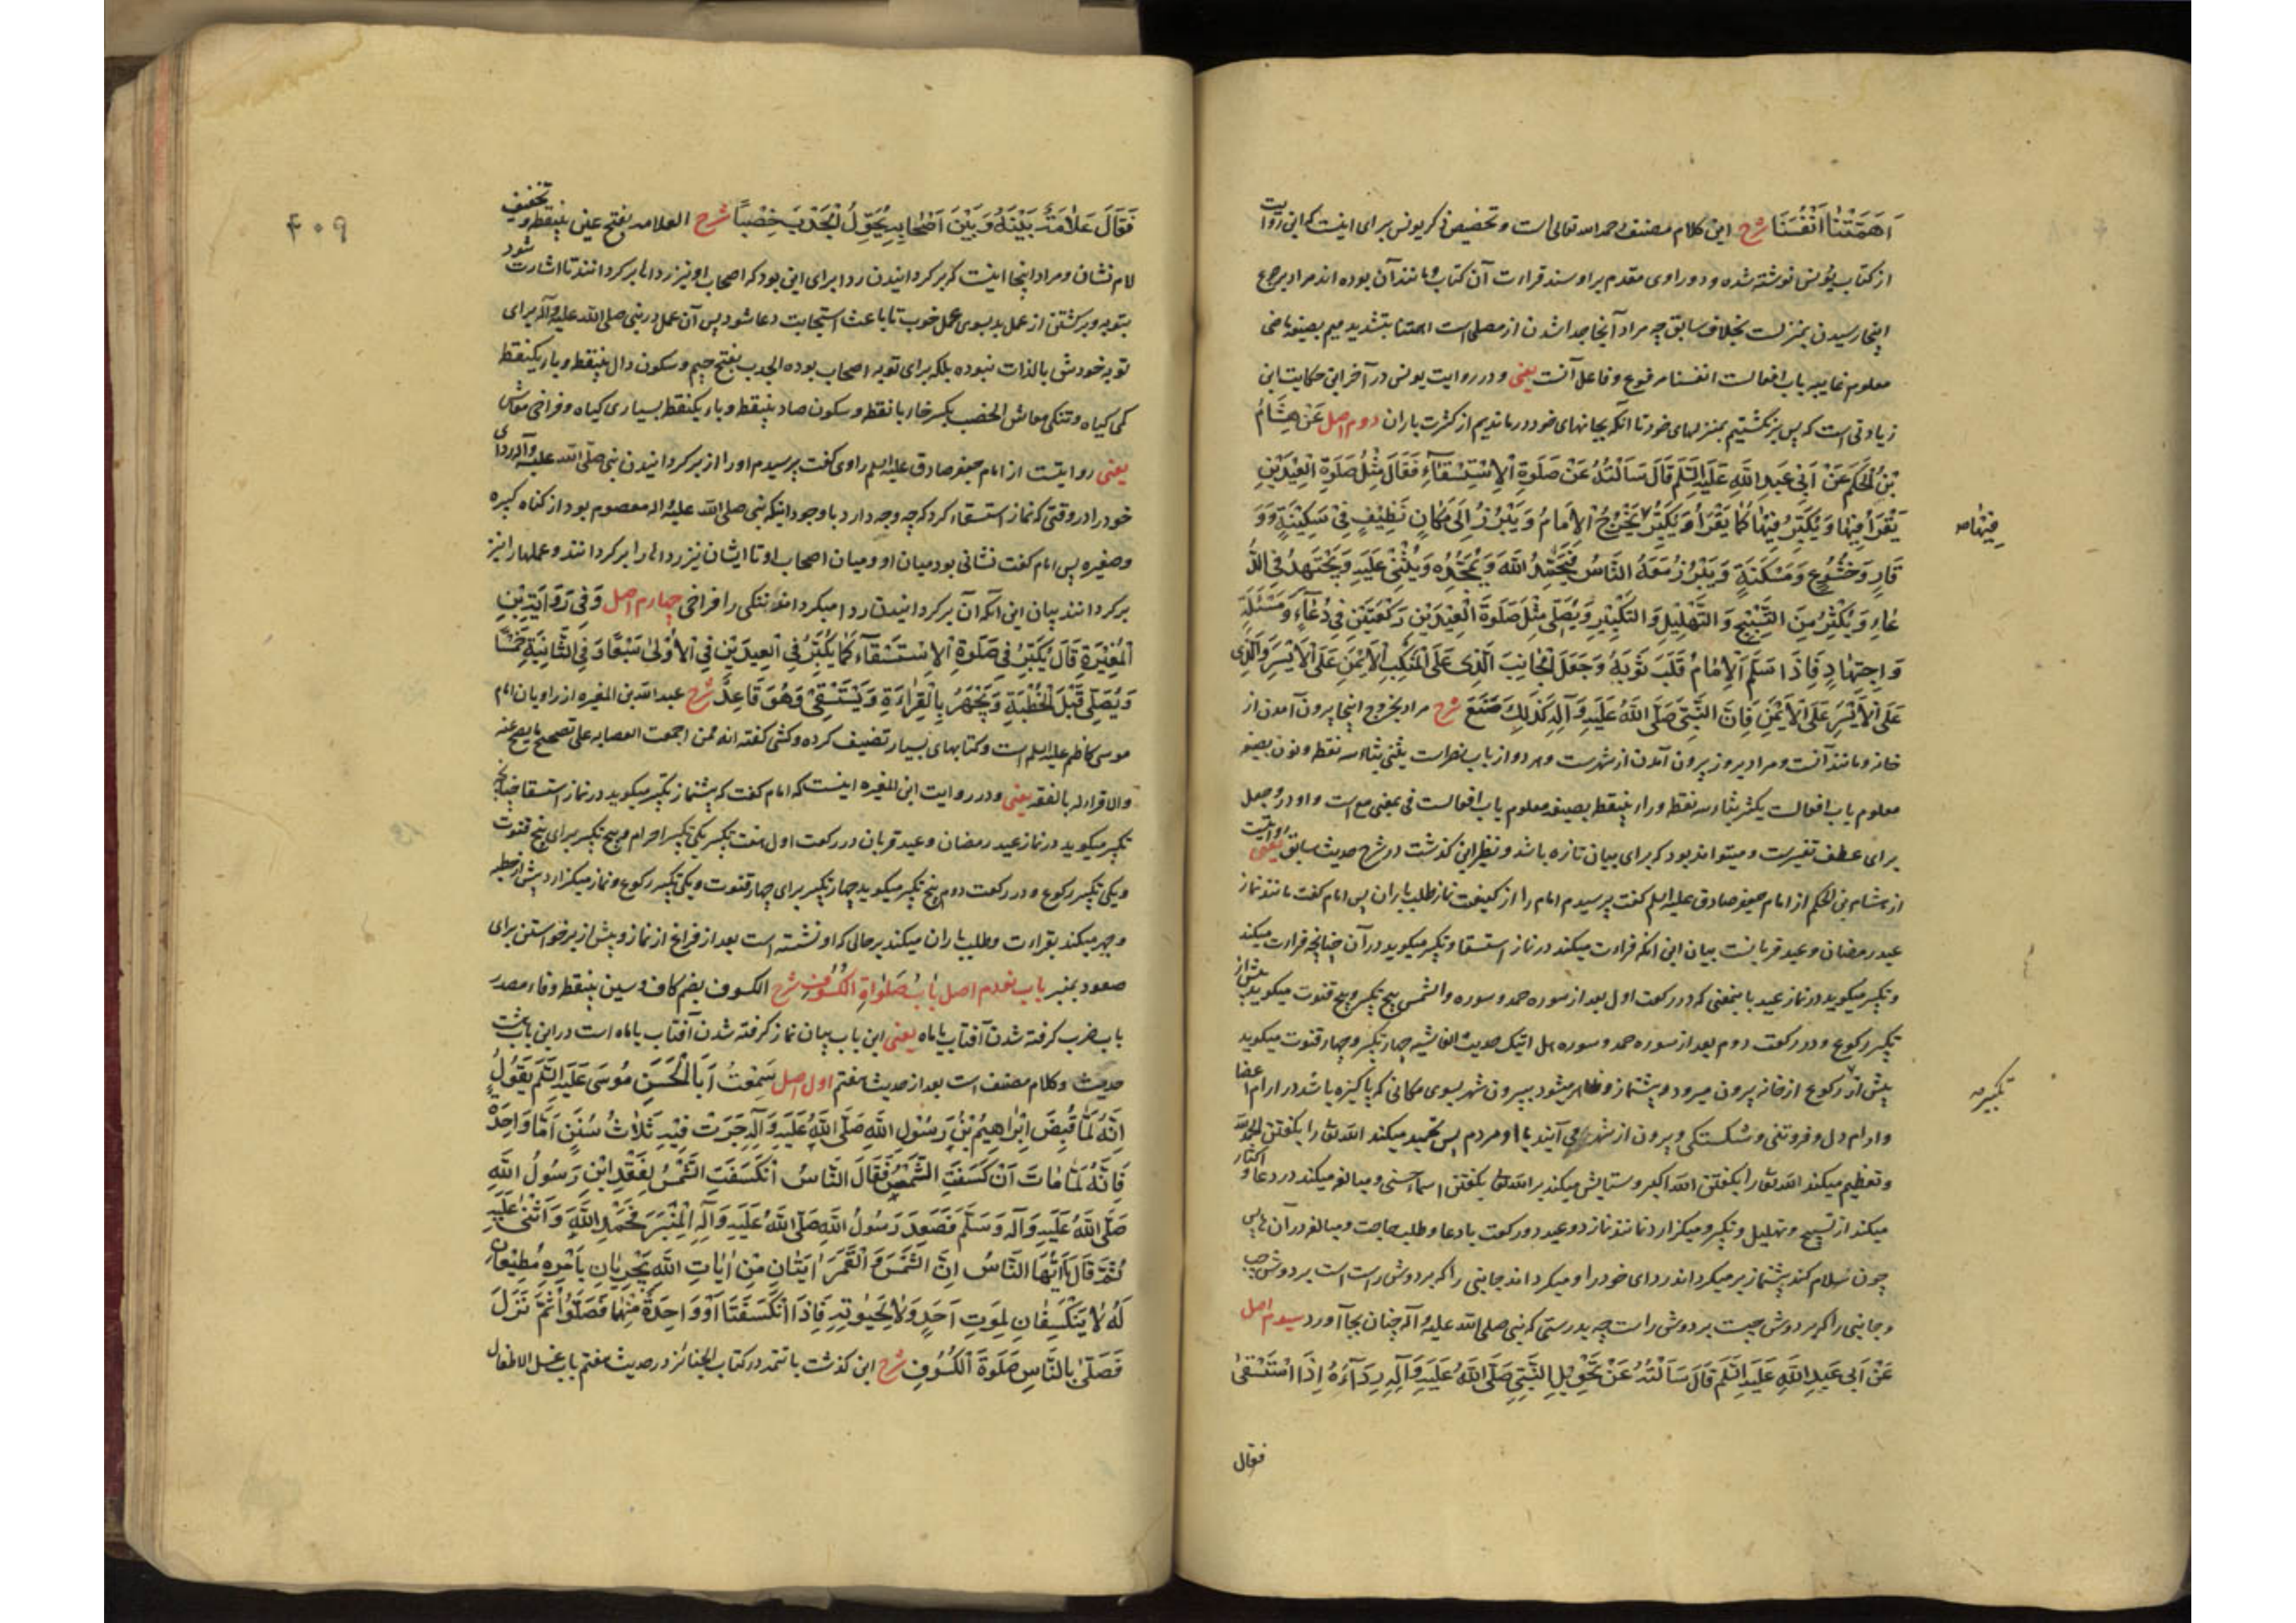 اَهَمَّتْنَا اَنْفُسَنَا شرح این کلام مصنف رحمه الله تعالی است و تخصیص ذکر یونس برای اینست که این روایت
از کتاب یونس نوشته شده و دو راوی مقدم بر او سند قراءت آن کتاب و مانند آن بوده اند مراد برجوع
اینجا رسیدن بمنزلست بخلاف سابق چه مراد آنجا جدا شدن از مصلی است اهمتنا بتشدید میم بصیغه ماضی
معلوم غایبه باب افعالست انفسنا مرفوع و فاعل آنست یعنی و در روایت یونس در آخر این حکایت این
زیادتی است که پس برنگشتیم بمنزلهای خود تا آنکه بجانهای خود درماندیم از کثرت باران دوم اصل عَنْ هِشَامِ
بْنِ الْحَکَمِ عَنْ اَبِی عَبْدِ اللّهِ عَلَیْهِ السَّلَم قَالَ سَاَلْتُهُ عَنْ صَلَوةِ الْاِسْتِسْقَآءِ فَقَالَ مِثْلُ صَلَوةِ الْعِیدَیْنِ
یَقْرَأُ فِیهَا وَیُکَبِّرُ فِیهَا کَمَا یَقْرَأُ وَیُکَبِّرُ یَخْرُجُ الْاِمَامُ وَیَبْرُزُ اِلَی مَکَانٍ نَظِیفٍ فِی سَکِینَةٍ وَوَ
فیها صه
قَارٍ وَخُشُوعٍ وَمَسْکَنَةٍ وَیَبْرُزُ مَعَهُ النَّاسُ فَیَحْمَدُ اللّهَ وَیُمَجِّدُهُ وَیُثْنِی عَلَیْهِ وَیَجْتَهِدُ فِی الدُّ
عَاءِ وَیُکْثِرُ مِنَ التَّسْبِیحِ وَالتَّهْلِیلِ وَالتَّکْبِیرِ وَیُصَلِّی مِثْلَ صَلَوةِ الْعِیدَیْنِ رَکْعَتَیْنِ فِی دُعَآءٍ وَمَسْئَلَةٍ
وَاجْتِهَادٍ فَاِذَا سَلَّمَ الْاِمَامُ قَلَبَ ثَوْبَهُ وَجَعَلَ الْجَانِبَ الَّذِی عَلَی الْمَنْکِبِ الْاَیْمَنِ عَلَی الْاَیْسَرِ وَالَّذِی
عَلَی الْاَیْسَرِ عَلَی الْاَیْمَنِ فَاِنَّ النَّبِیَّ صَلَّی اللّهُ عَلَیْهِ وَآلِهِ کَذَلِکَ صَنَعَ شرح مراد بخروج اینجا بیرون آمدن از
خانه و مانند آنست و مراد ببروز بیرون آمدن از شهرست و هر دو از باب نصرست یثنی بثاء سه نقطه و نون بصیغه
معلوم باب افعالست یکثر بثاء سه نقطه و راء بینقطه بصیغه معلوم باب افعالست فی بمعنی مع است و واو در وجعل
برای عطف تفسیرست و میتواند بود که برای بیان تازه باشد و نظیر این گذشت در شرح حدیث سابق یعنی روایتست
از هشام بن الحکم از امام جعفر صادق علیه السلم گفت پرسیدم امام را از کیفیت نماز طلب باران پس امام گفت مانند نماز
عید رمضان و عید قربانست بیان این آنکه قراءت میکند در نماز استسقا و تکبیر میکوید در آن چنانچه قراءت میکند
و تکبیر میکوید در نماز عید باینمعنی که در رکعت اول بعد از سوره حمد و سوره والشمس پنج تکبیر و پنج قنوت میکوید پیش از
تکبیر رکوع و در رکعت دوم بعد از سوره حمد و سوره هل اتیک حدیث الغاشیه چهار تکبیر و چهار قنوت میکوید
پیش از رکوع از خانه بیرون میرود و پیشنماز و ظاهر میشود بیرون شهر بسوی مکانی که پاکیزه باشد در ارام اعضا
تکبیر صه
و ارام دل و فروتنی و شکستگی و بیرون از شهر می آیند با او مردم پس تحمید میکند الله تعا را بگفتن الحمد لله
و تعظیم میکند الله تعا را بگفتن الله اکبر و ستایش میکند بر الله تعا بگفتن اسماء حسنی و مبالغه میکند در دعا و اکثار
میکند از تسبیح و تهلیل و تکبیر و میکزارد نماز مانند نماز دو عید دو رکعت با دعا و طلب حاجت و مبالغه در آن ها پس
چون سلام کند پیشنماز بر میکرداند ردای خود را و میکرداند جانبی را که بر دوش راست است بر دوش چپ
و جانبی را که بر دوش چپست بر دوش راست چه بدرستی که نبی صلی الله علیه و آله چنان بجا آورد سیوم اصل
عَنْ اَبِی عَبْدِ اللّهِ عَلَیْهِ السَّلَم قَالَ سَاَلْتُهُ عَنْ تَحْوِیلِ النَّبِیِّ صَلَّی اللّهُ عَلَیْهِ وَآلِهِ رِدَآءَهُ اِذَا اسْتَسْقَی
فقال
۴۰۹
فَقَالَ عَلَامَةٌ بَیْنَهُ وَبَیْنَ اَصْحَابِهِ یُحَوِّلُ الْجَدْبَ خِصْبًا شرح العلامه بفتح عین بینقطه و تخفیف
لام نشان و مراد اینجا اینست که برکردانیدن ردا برای این بود که اصحاب او نیز رداها برکردانند تا اشارت شود
بتوبه و برکشتن از عمل بد بسوی عمل خوب تا باعث استجابت دعا شود پس آن عمل در نبی صلی الله علیه و آله برای
توبه خودش بالذات نبوده بلکه برای توبه اصحاب بوده الجدب بفتح جیم و سکون دال بینقطه و باء یکنقطه
کمی کیاه و تنکی معاش الخصب بکسر خاء با نقطه و سکون صاد بینقطه و باء یکنقطه بسیاری کیاه و فراخی معاش
یعنی روایتست از امام جعفر صادق علیه السلم راوی گفت پرسیدم او را از برکردانیدن نبی صلی الله علیه و آله ردای
خود را در وقتی که نماز استسقاء کرد که چه وجه دارد با وجود اینکه نبی صلی الله علیه و اله معصوم بود از گناه کبیره
و صغیره پس امام گفت نشانی بود میان او و میان اصحاب او تا ایشان نیز رداها را برکردانند و عملها را نیز
برکردانند بیان این آنکه آن برکردانیدن ردا میکرداند تنکی را فراخی چهارم اصل وَفِی رِوَایَةِ بْنِ
الْمُغِیْرَةِ قَالَ یُکَبِّرُ فِی صَلَوةِ الْاِسْتِسْقَآءِ کَمَا یُکَبِّرُ فِی الْعِیدَیْنِ فِی الْاُوْلَی سَبْعًا وَفِی الثَّانِیَةِ خَمْسًا
وَیُصَلِّی قَبْلَ الْخُطْبَةِ وَیَجْهَرُ بِالْقِرَاءَةِ وَیَسْتَسْقِی وَهُوَ قَاعِدٌ شرح عبد الله بن المغیره از راویان امام
موسی کاظم علیه السلم است و کتابهای بسیار تصنیف کرده و کشی گفته انه ممن اجمعت العصابه علی تصحیح ما یصح عنه
والاقرار له بالفقه یعنی و در روایت ابن المغیره اینست که امام گفت که پیشنماز تکبیر میکوید در نماز استسقا چنانچه
تکبیر میکوید در نماز عید رمضان و عید قربان در رکعت اول هفت تکبیر یکی تکبیر احرام و پنج تکبیر برای پنج قنوت
و یکی تکبیر رکوع و در رکعت دوم پنج تکبیر میکوید چهار تکبیر برای چهار قنوت و یکی تکبیر رکوع و نماز میکزارد پیش از خطبه
و جهر میکند بقراءت و طلب باران میکند بر حالی که او نشسته است بعد از فراغ از نماز و پیش از برخواستن برای
صعود بمنبر باب نودم اصل بَابُ صَلَوةِ الْکُسُوْفِ شرح الکسوف بضم کاف و سین بینقطه و فاء مصدر
باب ضرب گرفته شدن آفتاب یا ماه یعنی این باب بیان نماز گرفته شدن آفتاب یا ماه است در این باب هشت
حدیث و کلام مصنف است بعد از حدیث هفتم اول اصل سَمِعْتُ اَبَا الْحَسَنِ مُوسَی عَلَیْهِ السَّلَم یَقُوْلُ
اِنَّهُ لَمَّا قُبِضَ اِبْرَاهِیْمُ بْنُ رَسُوْلِ اللّهِ صَلَّی اللّهُ عَلَیْهِ وَآلِهِ جَرَتْ فِیْهِ ثَلَاثُ سُنَنٍ اَمَّا وَاحِدَةٌ
فَاِنَّهُ لَمَّا مَاتَ انْکَسَفَتِ الشَّمْسُ فَقَالَ النَّاسُ انْکَسَفَتِ الشَّمْسُ لِفَقْدِ ابْنِ رَسُوْلِ اللّهِ
صَلَّی اللّهُ عَلَیْهِ وَآلِهِ وَسَلَّمَ فَصَعِدَ رَسُوْلُ اللّهِ صَلَّی اللّهُ عَلَیْهِ وَآلِهِ الْمِنْبَرَ فَحَمِدَ اللّهَ وَاَثْنَی عَلَیْهِ
ثُمَّ قَالَ یَا اَیُّهَا النَّاسُ اِنَّ الشَّمْسَ وَالْقَمَرَ اٰیَتَانِ مِنْ اٰیَاتِ اللّهِ یَجْرِیَانِ بِاَمْرِهِ مُطِیْعَانِ
لَهُ لَا یَنْکَسِفَانِ لِمَوْتِ اَحَدٍ وَلَا لِحَیٰوتِهِ فَاِذَا انْکَسَفَتَا اَوْ وَاحِدَةٌ مِنْهُمَا فَصَلُّوْا ثُمَّ نَزَلَ
فَصَلَّی بِالنَّاسِ صَلَوةَ الْکُسُوْفِ شرح این گذشت با تتمه در کتاب الجنائز در حدیث هفتم باب غسل الاطفال